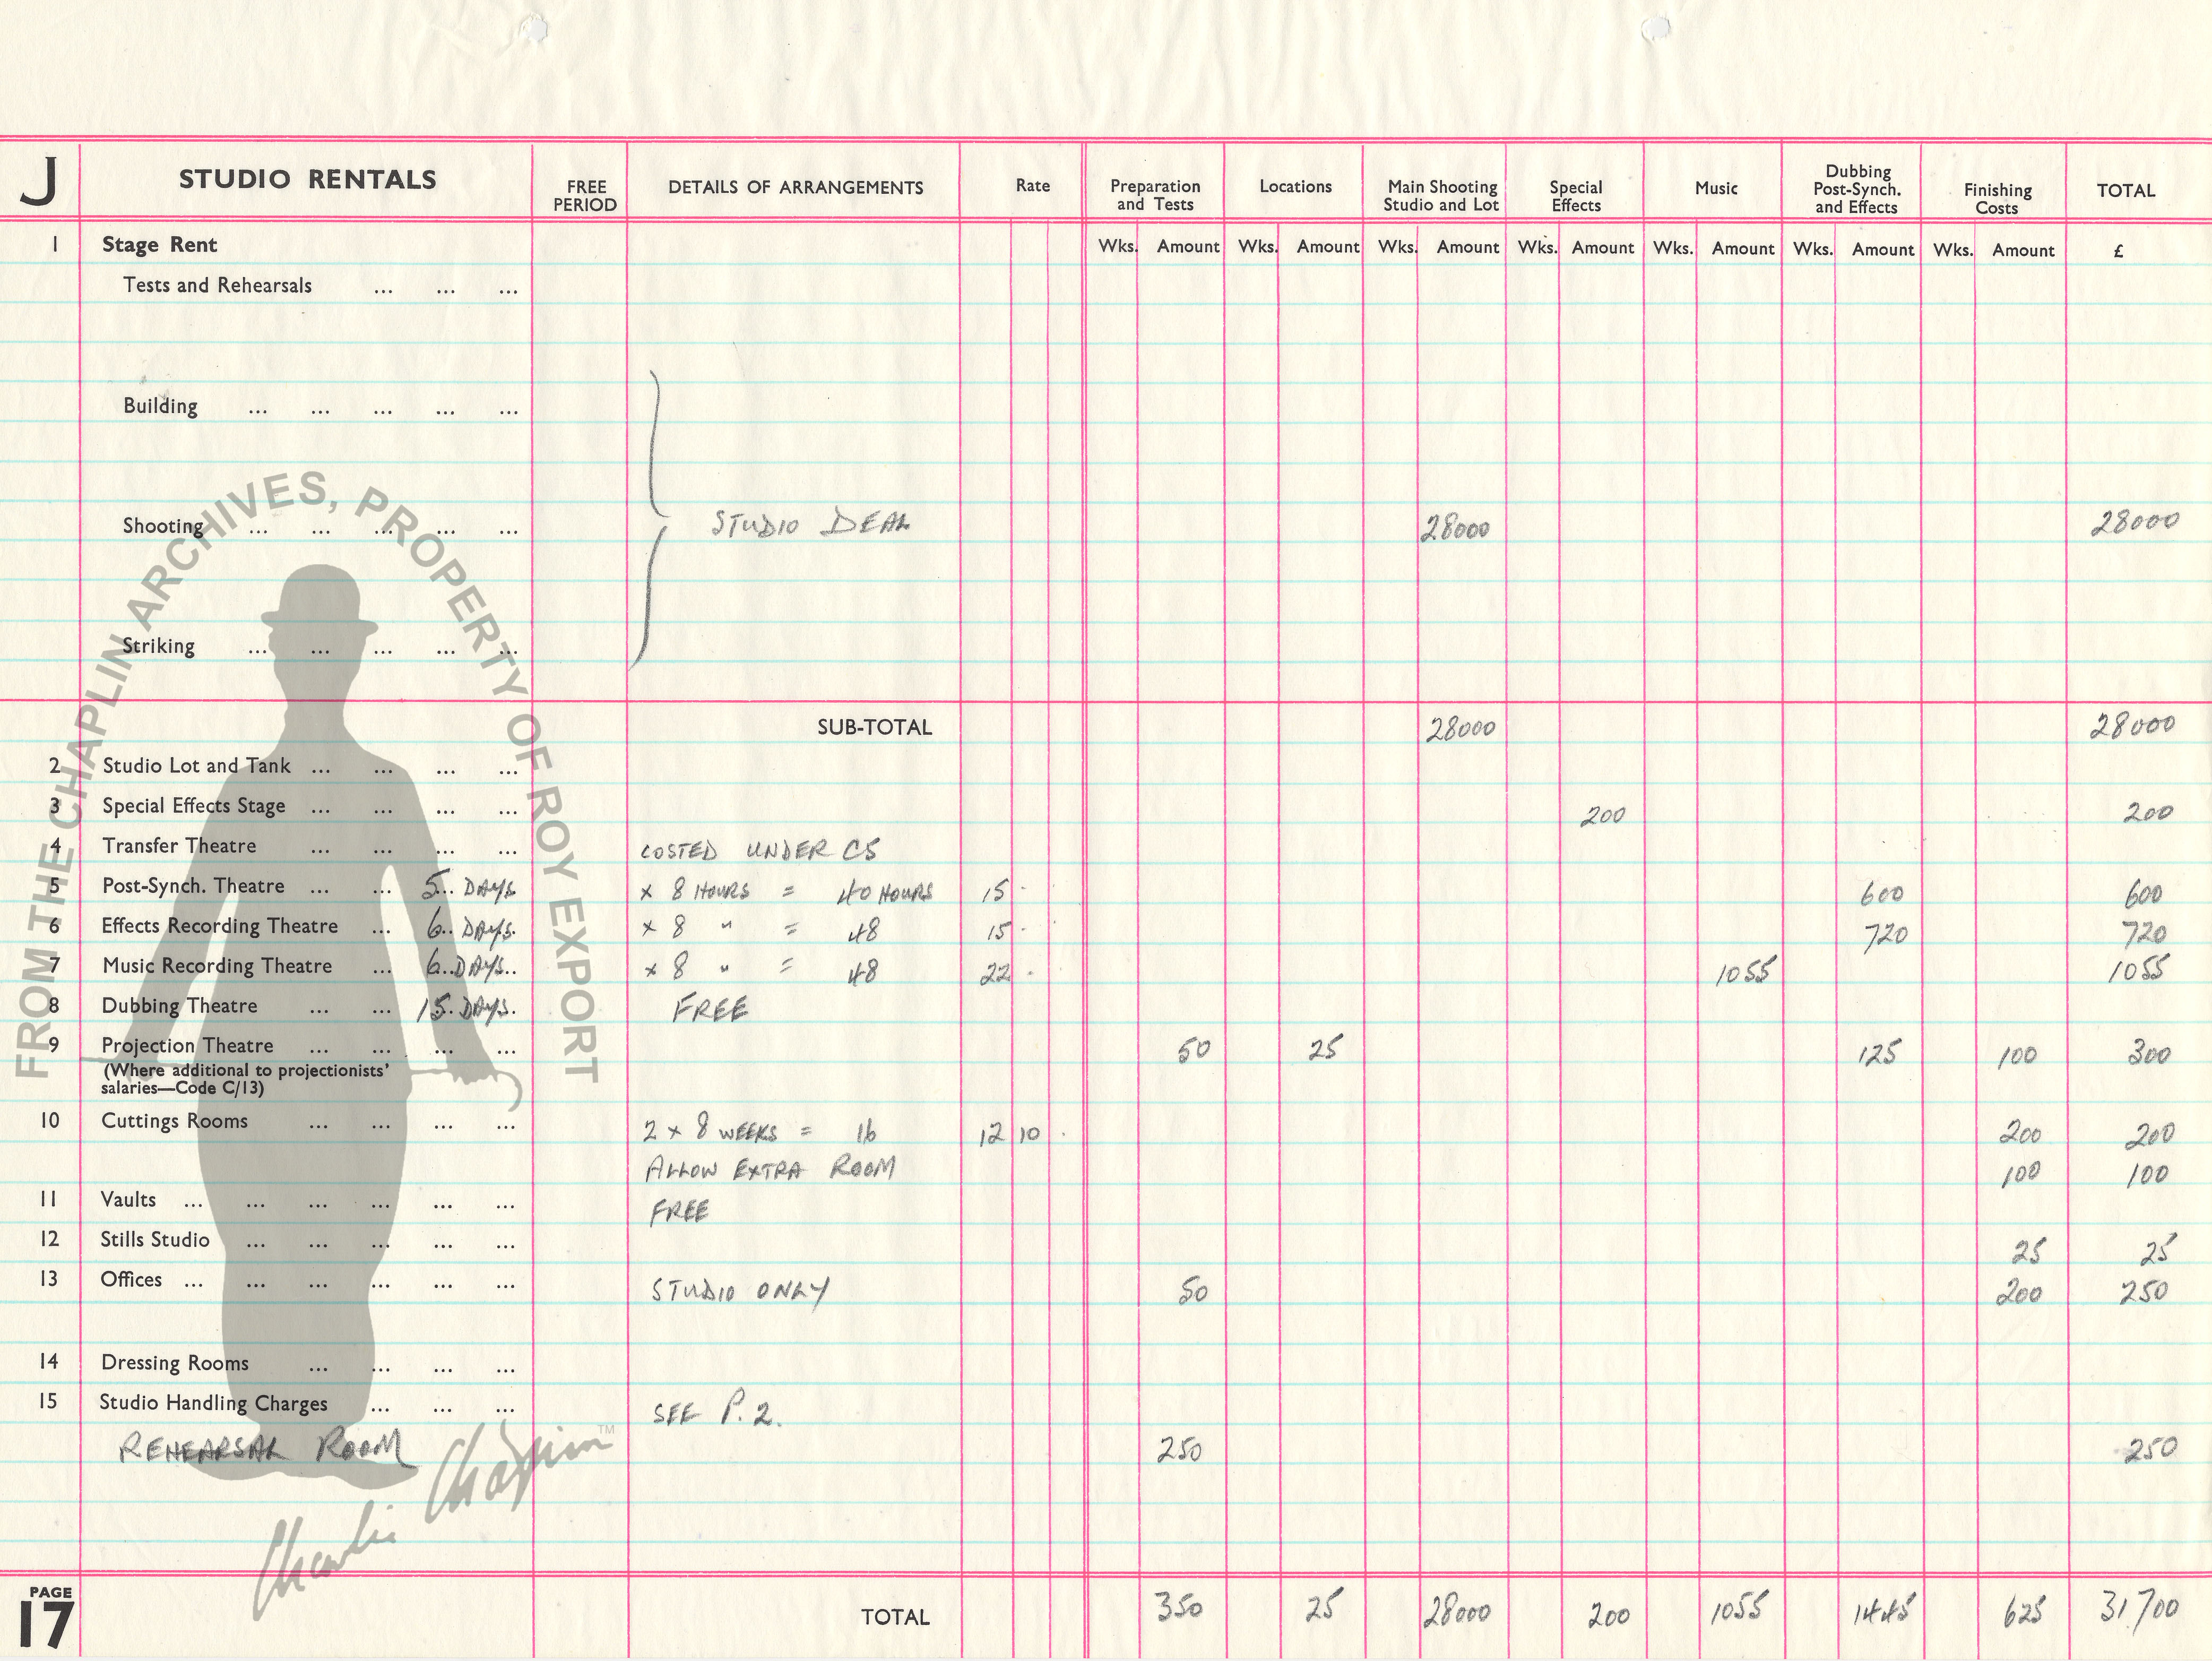 J STUDIO RENTALS FREE PERIOD DETAILS OF ARRANGEMENTS Rate Preparation and Tests Locations Main Shooting Studio and Lot Special Effects Music Dubbing Post-Synch. and Effects Finishing Costs TOTAL
1 Stage Rent Wks. Amount Wks. Amount Wks. Amount Wks. Amount Wks. Amount Wks. Amount Wks. Amount £
Tests and Rehearsals ... ... ...
Building ... ... ... ... ...
Shooting ... ... ... ... ... STUDIO DEAL 28000 28000
Striking ... ... ... ... ...
SUB-TOTAL 28000 28000
2 Studio Lot and Tank ... ... ... ...
3 Special Effects Stage ... ... ... ... 200 200
4 Transfer Theatre ... ... ... ... COSTED UNDER C5
5 Post-Synch. Theatre ... ... 5 DAYS x 8 HOURS = 40 HOURS 15 - 600 600
6 Effects Recording Theatre ... 6 DAYS. x 8 " = 48 15 - 720 720
7 Music Recording Theatre ... 6 DAYS. x 8 " = 48 22 - 1055 1055
8 Dubbing Theatre ... ... 15 DAYS. FREE
9 Projection Theatre ... ... ... ... 50 25 125 100 300
(Where additional to projectionists'
salaries—Code C/13)
10 Cuttings Rooms ... ... ... ... 2 x 8 WEEKS = 16 12 10 - 200 200
ALLOW EXTRA ROOM 100 100
11 Vaults ... ... ... ... ... ... FREE
12 Stills Studio ... ... ... ... ... 25 25
13 Offices ... ... ... ... ... ... STUDIO ONLY 50 200 250
14 Dressing Rooms ... ... ... ...
15 Studio Handling Charges ... ... ... SEE P. 2.
REHEARSAL ROOM 250 250
PAGE
17 TOTAL 350 25 28000 200 1055 1445 625 31,700
FROM THE CHAPLIN ARCHIVES, PROPERTY OF ROY EXPORT
Charlie Chaplin™